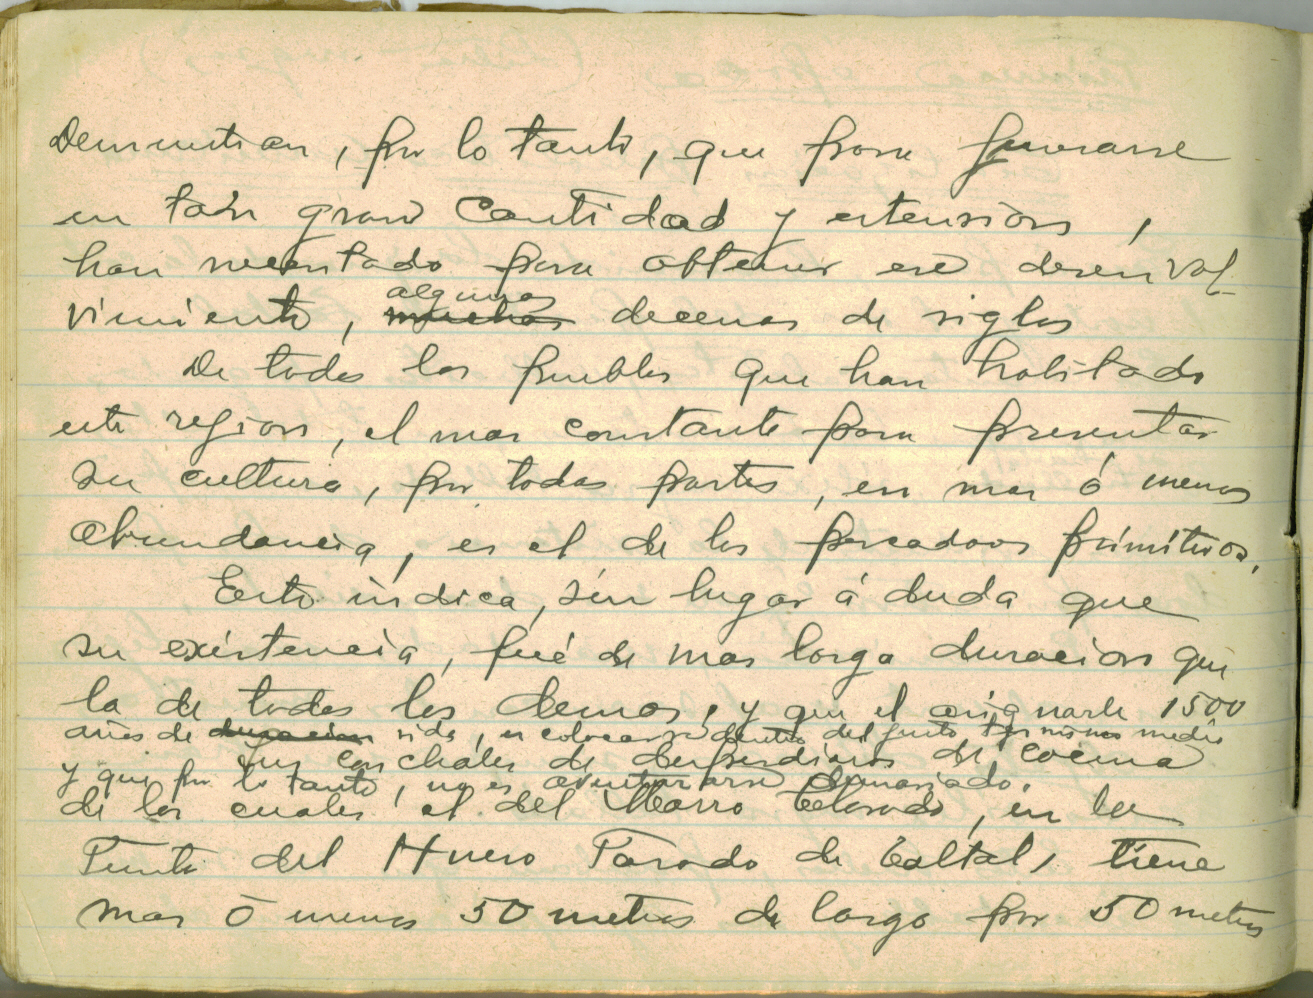 Demuestran, por lo tanto, que para generarse
en tan gran cantidad y extension,
han necesitado para obtener ese desenvol
vimiento, muchas algunas decenas de siglos
De todos los pueblos que han habitado
esta region, el mas constante para presentar
su cultura, por todas partes, en mas ó menos
abundancia, es el de los pescadores primitivos.
Esto indica, sin lugar á duda que
su existencia, fué de mas larga duracion que
la de todos los demas, y que el asignarle 1500
años de duracion vida, es colocarse dentro del justo termino medio
y que por lo tanto, no es aventurarse demasiado.
Sus conchales de desperdicios de cocina
de los cuales el del Morro Colorado, en la
Punta del Hueso Parado de Taltal, tiene
mas ó menos 50 metros de largo por 50 metros